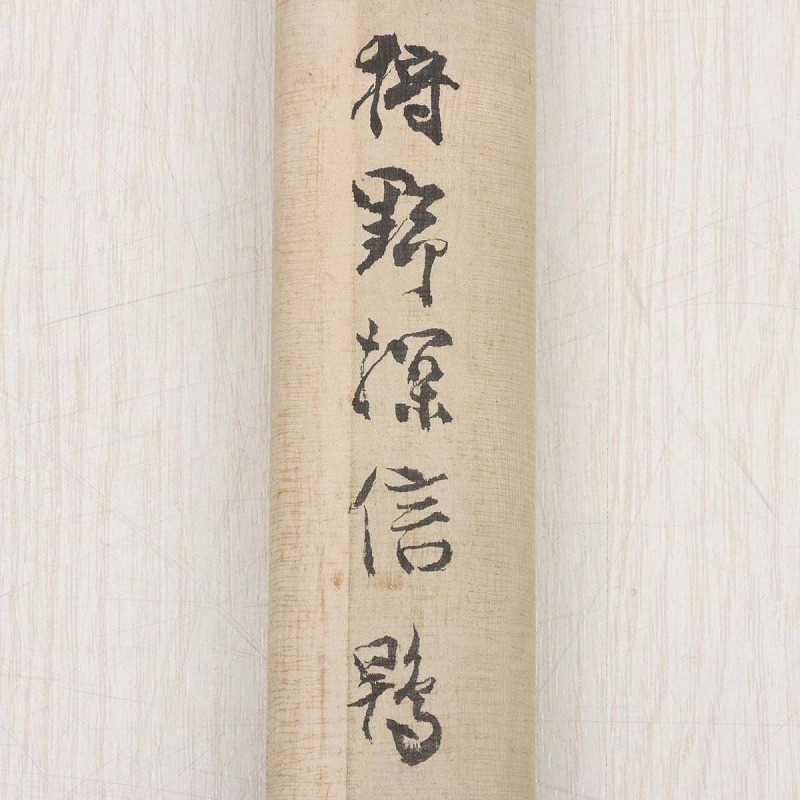 狩野探信鴨